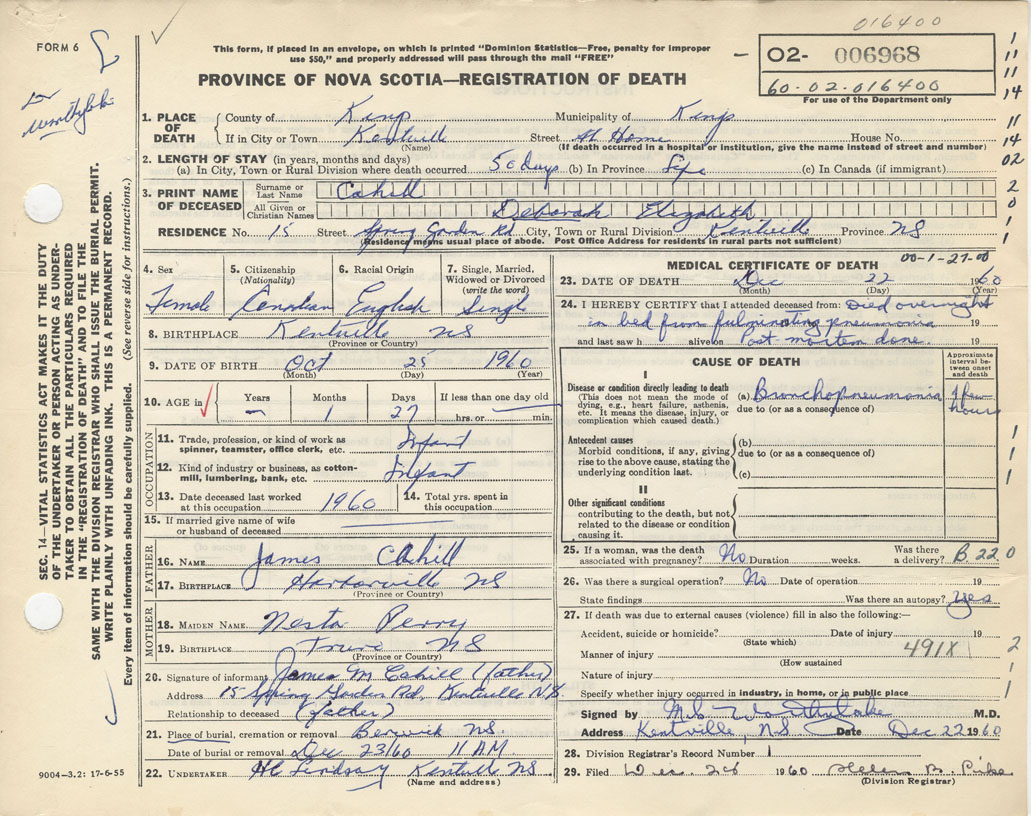 016400
FORM 6
This form, if placed in an envelope, on which is printed "Dominion Statistics—Free, penalty for improper
use $50," and properly addressed will pass through the mail "FREE"
PROVINCE OF NOVA SCOTIA—REGISTRATION OF DEATH
02- 006968
60-02-016400
For use of the Department only
1. PLACE OF DEATH
County of Kings Municipality of Kings
If in City or Town Kentville Street At Home House No.
(Name) (If death occurred in a hospital or institution, give the name instead of street and number)
2. LENGTH OF STAY (in years, months and days)
(a) In City, Town or Rural Division where death occurred 50 days (b) In Province Life (c) In Canada (if immigrant)
3. PRINT NAME OF DECEASED
Surname or Last Name Cahill
All Given or Christian Names Deborah Elizabeth
RESIDENCE No. 15 Street Spring Garden Rd City, Town or Rural Division Kentville Province NS
(Residence means usual place of abode. Post Office Address for residents in rural parts not sufficient)
4. Sex Female
5. Citizenship (Nationality) Canadian
6. Racial Origin English
7. Single, Married, Widowed or Divorced (write the word) Single
8. BIRTHPLACE Kentville NS
(Province or Country)
9. DATE OF BIRTH Oct 25 1960
(Month) (Day) (Year)
10. AGE in Years — Months 1 Days 27 If less than one day old hrs. or min.
OCCUPATION
11. Trade, profession, or kind of work as spinner, teamster, office clerk, etc. Infant
12. Kind of industry or business, as cotton-mill, lumbering, bank, etc. Infant
13. Date deceased last worked at this occupation 1960
14. Total yrs. spent in this occupation
15. If married give name of wife or husband of deceased
FATHER
16. NAME James Cahill
17. BIRTHPLACE Harborville NS
(Province or Country)
MOTHER
18. MAIDEN NAME Nesta Perry
19. BIRTHPLACE Truro NS
(Province or Country)
20. Signature of informant James M Cahill (father)
Address 15 Spring Garden Rd, Kentville NS
Relationship to deceased (father)
21. Place of burial, cremation or removal Berwick NS.
Date of burial or removal Dec 23/60 11 AM
22. UNDERTAKER HC Lindsay Kentville NS
(Name and Address)
00-1-27-00
MEDICAL CERTIFICATE OF DEATH
23. DATE OF DEATH Dec 22 1960
(Month) (Day) (Year)
24. I HEREBY CERTIFY that I attended deceased from: Died overnight
in bed from fulminating pneumonia 19
and last saw h alive on Post mortem done. 19
CAUSE OF DEATH
Approximate interval between onset and death
I
Disease or condition directly leading to death
(This does not mean the mode of dying, e.g., heart failure, asthenia, etc. It means the disease, injury, or complication which caused death.)
(a) Bronchopneumonia few hours
due to (or as a consequence of)
Antecedent causes
Morbid conditions, if any, giving rise to the above cause, stating the underlying condition last.
(b)
due to (or as a consequence of)
(c)
II
Other significant conditions
contributing to the death, but not related to the disease or condition causing it.
25. If a woman, was the death associated with pregnancy? No Duration weeks. Was there a delivery? B. 220
26. Was there a surgical operation? No Date of operation 19
State findings Was there an autopsy? Yes
27. If death was due to external causes (violence) fill in also the following:—
Accident, suicide or homicide? Date of injury 19
(State which)
Manner of injury 491X
(How sustained
Nature of injury
Specify whether injury occurred in industry, in home, or in public place
Signed by M.D.
Address Kentville, N.S. Date Dec 22 1960
28. Division Registrar's Record Number 1
29. Filed Dec. 28 1960 Helen B. Pike
(Division Registrar)
SEC. 14—VITAL STATISTICS ACT MAKES IT THE DUTY
OF THE UNDERTAKER OR PERSON ACTING AS UNDER-
TAKER TO OBTAIN ALL THE PARTICULARS REQUIRED
IN THE "REGISTRATION OF DEATH" AND TO FILE THE
SAME WITH THE DIVISION REGISTRAR WHO SHALL ISSUE THE BURIAL PERMIT.
WRITE PLAINLY WITH UNFADING INK. THIS IS A PERMANENT RECORD.
Every item of information should be carefully supplied. (See reverse side for instructions.)
9004—3.2: 17-6-55
1
11
11
14
11
14
02
2
0
1
1
1
1
2
1